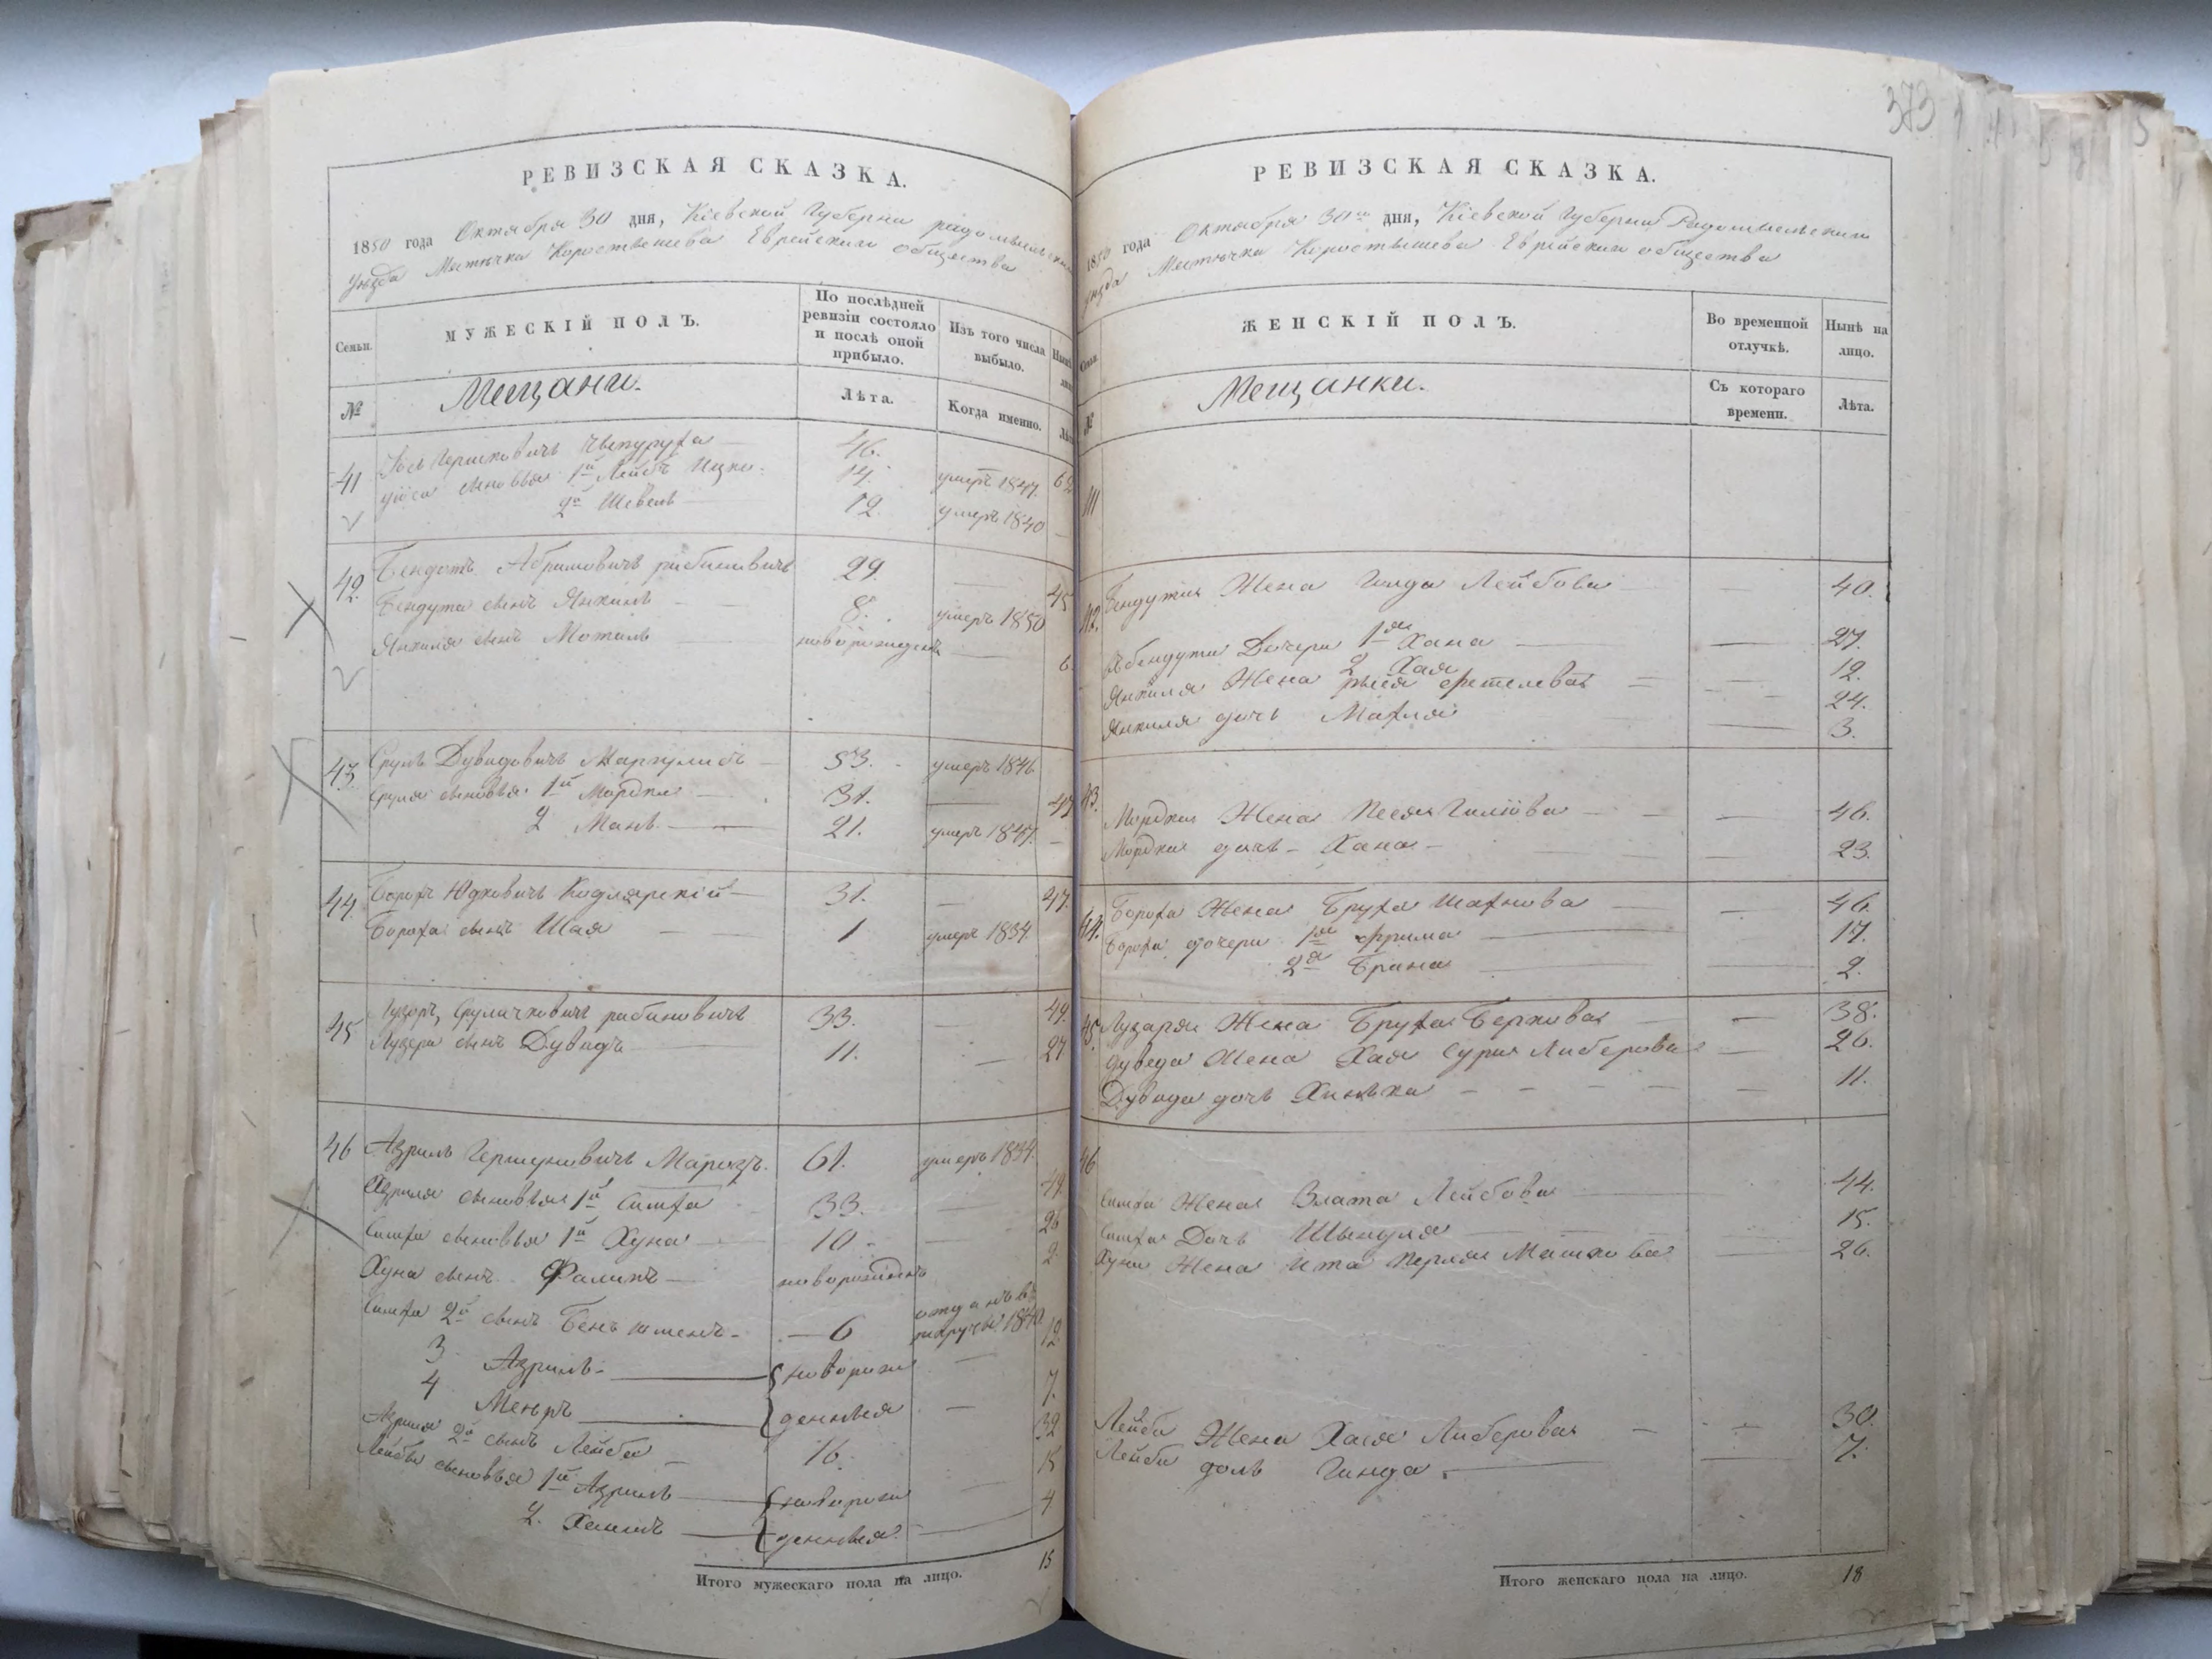 373
РЕВИЗСКАЯ СКАЗКА.
1850 года Октября 30 дня, Кіевской Губерни радомысльскаго
уѣзда Мѣстечка Коростышева Еврейскаго общества
Семьи.
МУЖЕСКІЙ ПОЛЪ.
По послѣдней ревизіи состояло и послѣ оной прибыло.
Изъ того числа выбыло.
№
Мещани.
Лѣта.
Когда именно.
41 Гершковичъ 46. 62
сыновья 1й Лейбъ Ицко 14. умеръ 1847.
2й Шевель 12. умеръ 1840
42. Бендетъ Абрамовичъ рабиновичъ 29. — 45
Бендета сынъ Янкель 8. умеръ 1850
Янкеля сынъ Мотель новорожденъ — 6.
43. Сруль Дувидовичъ Маргулисъ 53. умеръ 1846
Сруля сыновья 1й Мордко 31. — 47
2 Манъ 21. умеръ 1847.
44. Борохъ Юдковичъ Кодлярскій 31. — 47.
Бороха сынъ Шая 1 умеръ 1834.
45 Лузоръ Срулечковичъ рабиновичъ 33. — 49.
Лузера сынъ Дувидъ 11. — 27
46 Азриль Гершуновичъ Марозъ. 61. умеръ 1834.
Азриля сыновья 1й Симха 33. — 49.
Симхи сыновья 1й Хуна 10 — 26
Хуна сынъ Фаликъ новорожденъ 2
Симхи 2й сынъ Бень 6 отданъ в рекруты 1840
3 Азриль новорож — 12.
4 Меюръ денныя — 7.
Азриля 2й сынъ Лейба 16. 32
Лейбы сыновья 1й Азриль новорож — 15
2. Хаимъ денныя — 4
Итого мужескаго пола на лицо. 15
РЕВИЗСКАЯ СКАЗКА.
1850 года Октября 30го дня, Кіевской Губерни Радомысльскаго
уѣзда Мѣстечка Коростышева Еврейскаго общества
Семьи.
ЖЕНСКІЙ ПОЛЪ.
Во временной отлучкѣ.
Нынѣ на лицо.
№
Мещанки.
Съ котораго времени.
Лѣта.
42. Жена Голда Лейбова — 40.
Дочери 1ая Хана — 27.
2 Хая — 12.
Янкеля Жена рыся — 24.
Янкеля дочь Махля — 3.
43. Мордка Жена Песя — 46.
Мордка дочь Хана — 23.
44. Бороха Жена Бруха Шахнова — 46.
Бороха дочери 1ая Фрима — 17.
2я Брана — 2.
45. Лузаря Жена Бруха Беркова — 38.
Дуведа Жена Хая Сура Либерова — 26.
Дувида дочь Хинька — 11.
46 Симхи Жена Злата Лейбова 44.
Симхи Дочь 15.
Хуни Жена Ита Перля Машкова — 26.
Лейби Жена Хася Либерова — 30.
Лейби дочь Гинда — 7.
Итого женскаго пола на лицо. 18